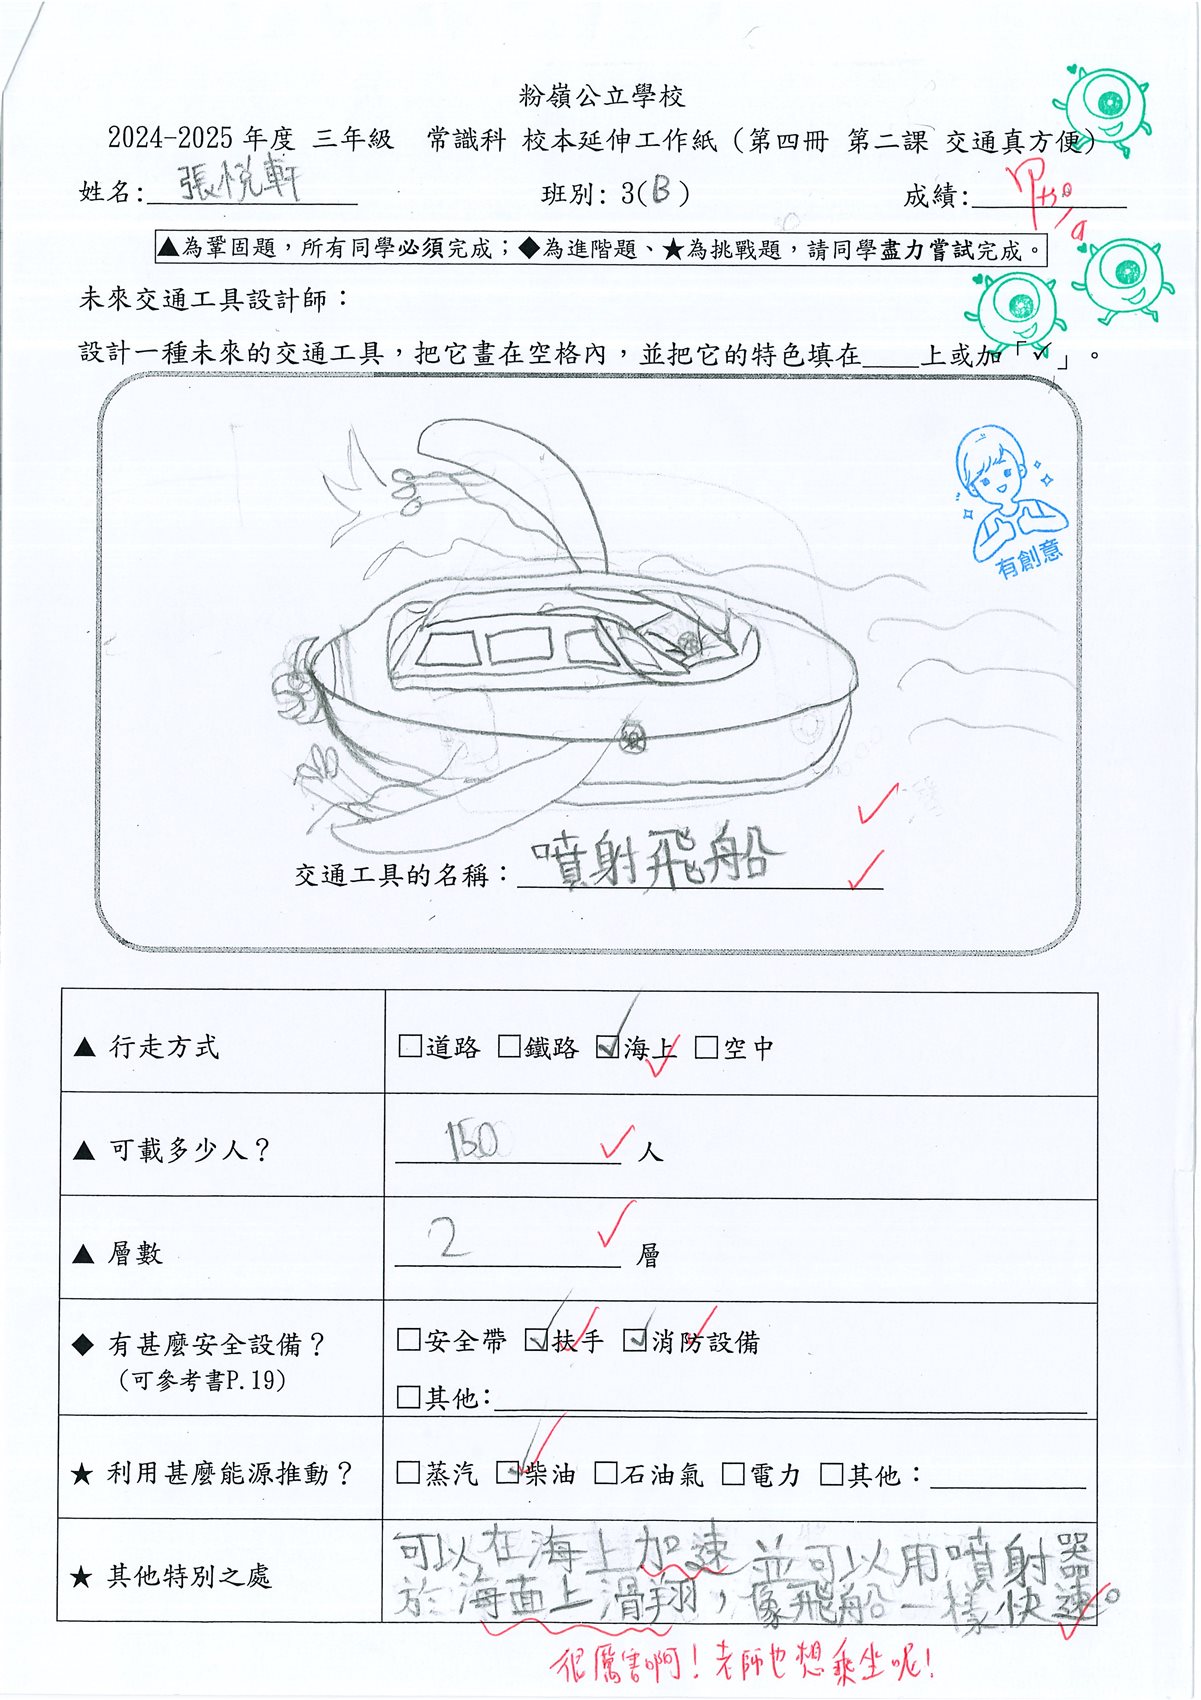 粉嶺公立學校
2024-2025 年度 三年級 常識科 校本延伸工作紙 (第四冊 第二課 交通真方便)
姓名: 張悅軒 班別: 3(B) 成績: 甲
▲為鞏固題，所有同學必須完成；◆為進階題、★為挑戰題，請同學盡力嘗試完成。
未來交通工具設計師：
設計一種未來的交通工具，把它畫在空格內，並把它的特色填在____上或加「✓」。
有創意
交通工具的名稱： 噴射飛船
▲ 行走方式 □道路 □鐵路 ☑海上 □空中
▲ 可載多少人？ 150 人
▲ 層數 2 層
◆ 有甚麼安全設備？ □安全帶 ☑扶手 ☑消防設備
(可參考書P.19) □其他:
★ 利用甚麼能源推動？ □蒸汽 ☑柴油 □石油氣 □電力 □其他：
可以在海上加速 並可以用噴射器
★ 其他特別之處
於海面上滑翔，像飛船一樣快速。
很厲害啊！老師也想乘坐呢！